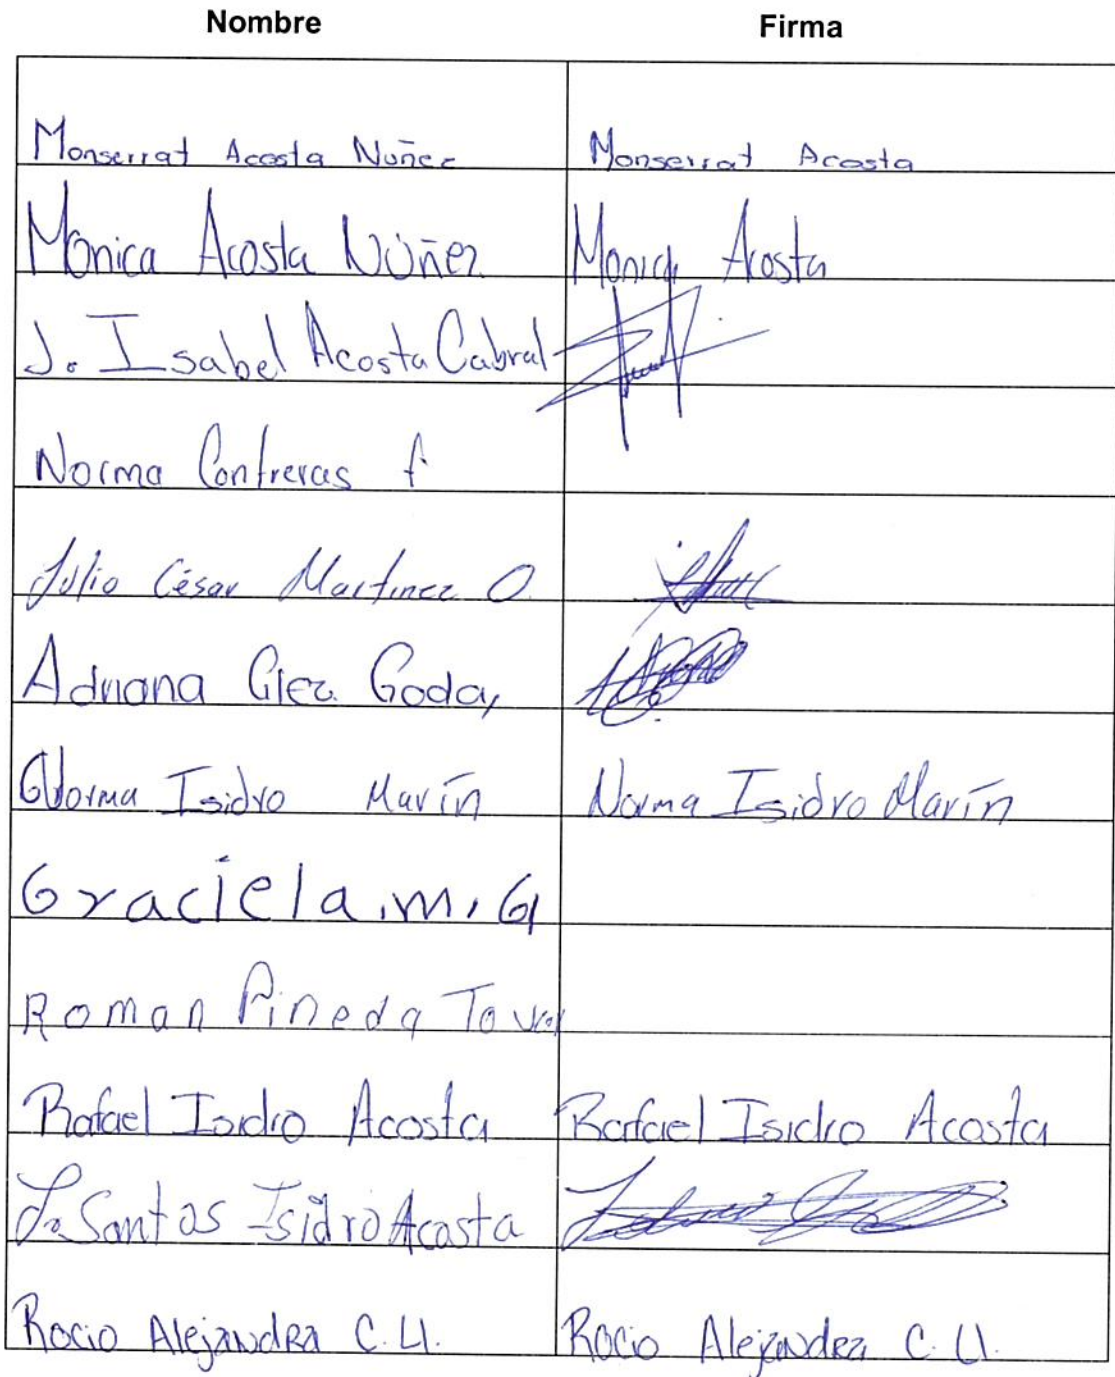 Nombre Firma
Monserrat Acosta Nuñez Monserrat Acosta
Mónica Acosta Núñez Monica Acosta
J. Isabel Acosta Cabral
Norma Contreras f.
Julio César Martinez O.
Adriana Glez. Goday
Norma Isidro Marín Norma Isidro Marín
Graciela.m.G
Roman Pineda Tovar
Rafael Isidro Acosta Rafael Isidro Acosta
J. Santos Isidro Acosta
Rocio Alejandra C. U. Rocio Alejandra C. U.